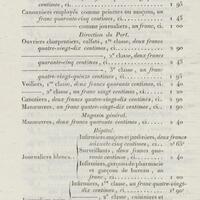 Canonniers employés comme peintres ou maçons, un
franc quarante-cinq centimes, ci. . . . . 1 45
comme journaliers, un franc, ci. 1 00
Direction du Port.
Ouvriers charpentiers, calfats, 1re classe, deux francs
quatre-vingt-dix centimes, ci. . . . . 2 90
2e classe, deux francs
quarante-cinq centimes, ci. . . . . 2 45
3e classe, un franc
quatre-vingt-quinze centimes, ci. . . . . 1 95
Voiliers, 1re classe, deux francs quarante centimes, ci. 2 40
2e classe, deux francs, ci. . . . . 2 00
Canotiers, deux francs quatre-vingt-dix centimes, ci.
Manœuvres, un franc quatre-vingt-dix centimes, ci. . 1 90
Magasin général.
Manœuvres, deux francs quarante centimes, ci. . 2 40
Hôpital.
Journaliers blancs.
Infirmiers majors et jardiniers, deux francs
soixante-cinq centimes, ci. . . 2 65
Surveillants, deux francs quarante
centimes, ci. . . . . 2 40
Infirmiers, garçons de pharmacie
et garçons de bureau, un
franc, ci. . . . .
Infirmiers, 1re classe, un franc quatre-vingt-dix
centimes, ci. . . . . 1 90
2e classe, cuisiniers et